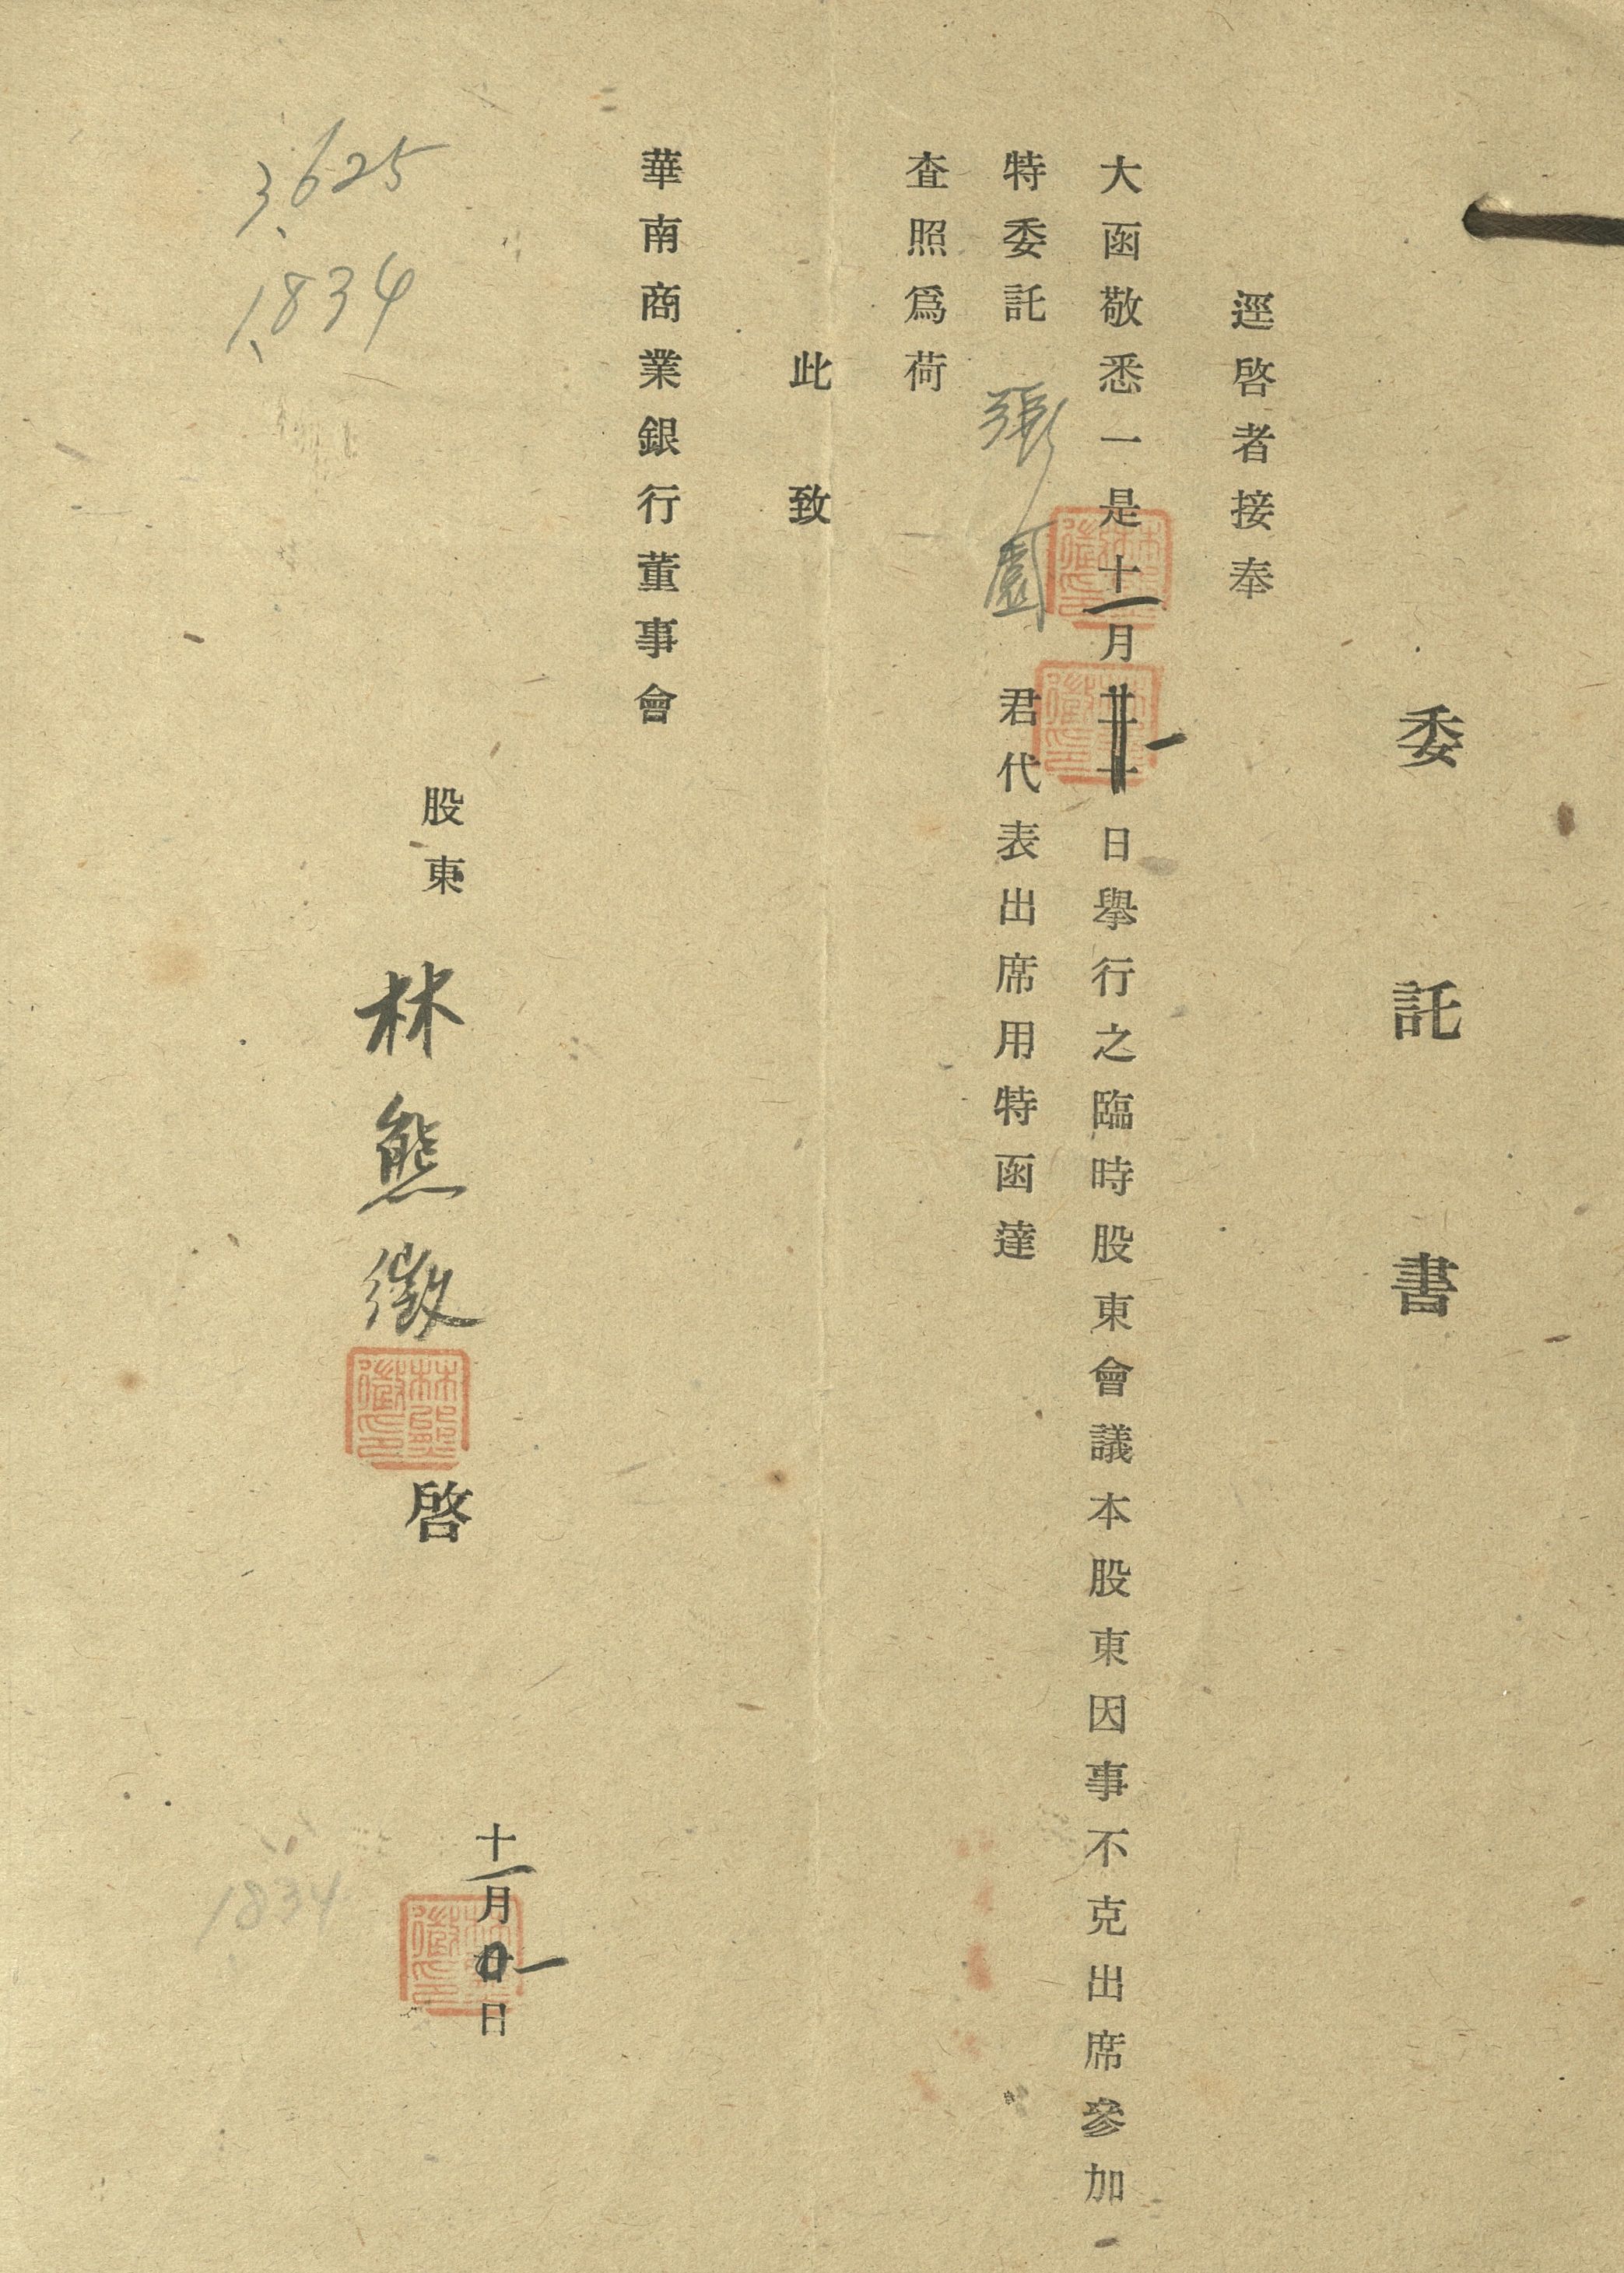 委託書
逕啓者接奉
大函敬悉一是十一月一日舉行之臨時股東會議本股東因事不克出席參加
特委託 張園 君代表出席用特函達
查照爲荷
此致
華南商業銀行董事會
股東 林熊徵 啓
十一月一日
3,625
1,834
1834